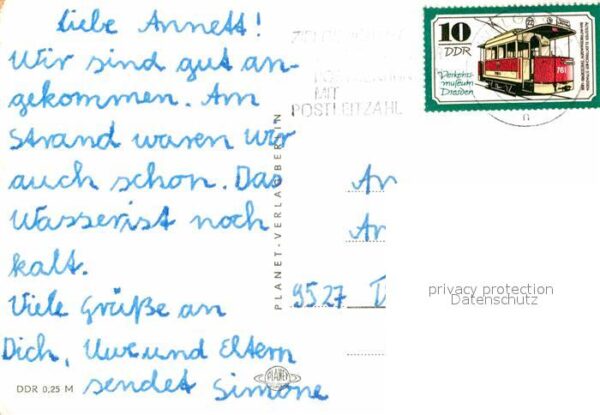 Liebe Annett!
Wir sind gut an-
gekommen. Am
Strand waren wir
auch schon. Das
Wasser ist noch
kalt.
Viele Grüße an
Dich, Uwe und Eltern
sendet Simone
DDR 0,25 M
PLANET-VERLAG BERLIN
PLANET
MIT
POSTLEITZAHL
10
DDR
Verkehrs-
museum
Dresden
An
An
9527
privacy protection
Datenschutz